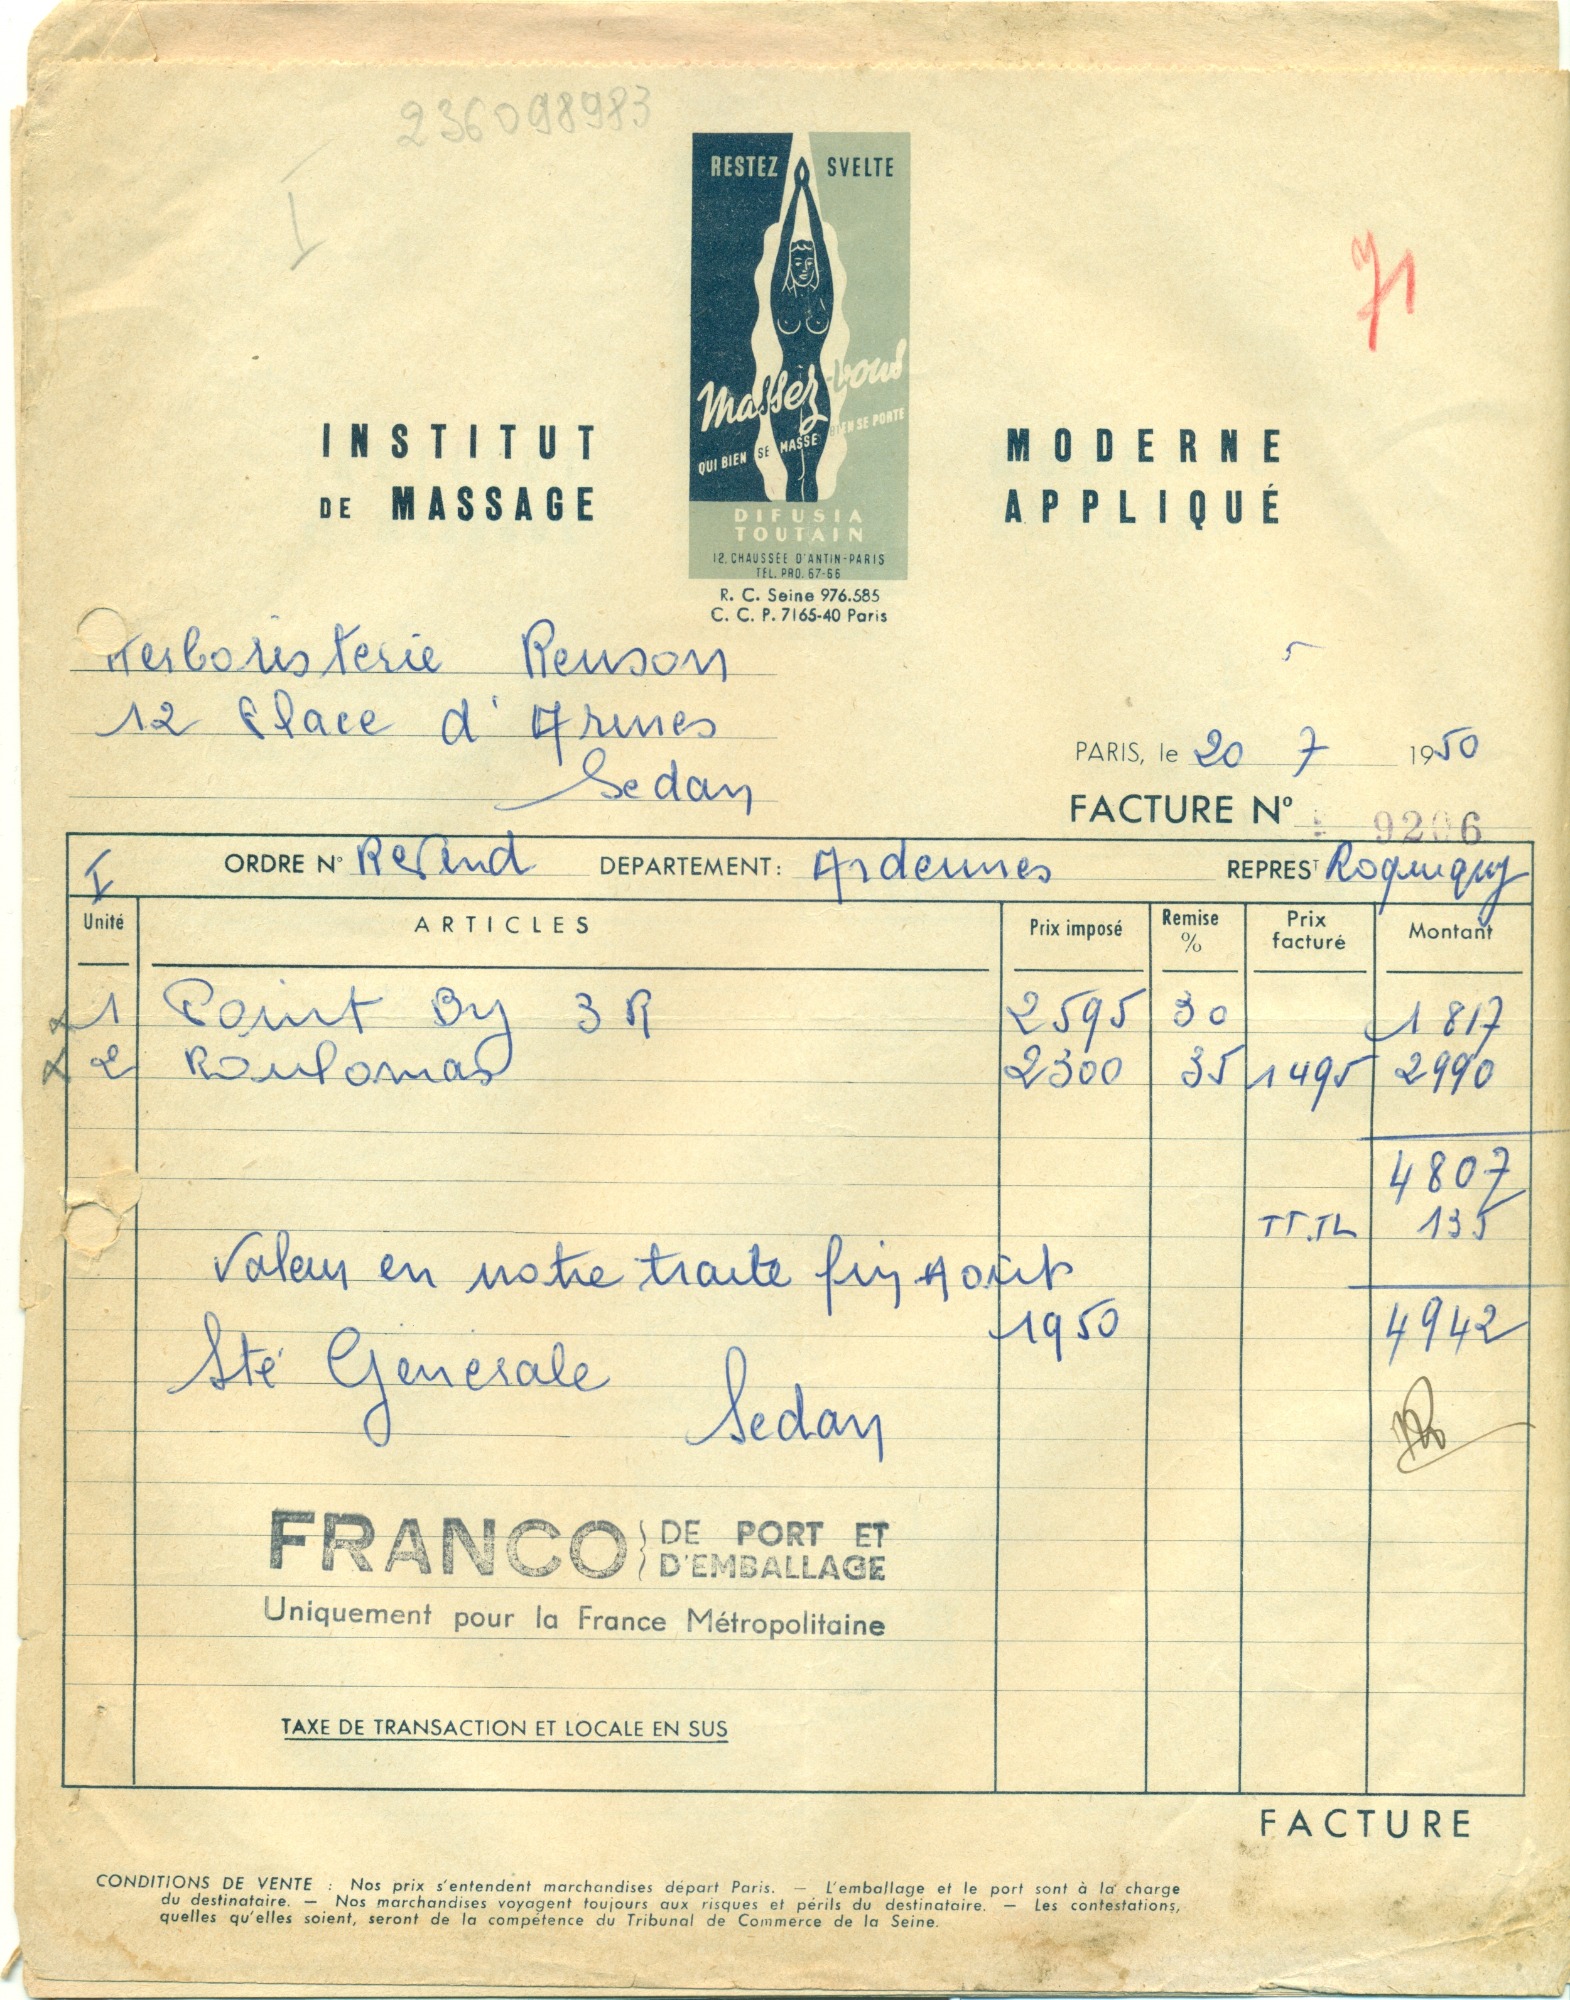 236098983
I
RESTEZ SVELTE
71
Massez-vous
QUI BIEN SE MASSE BIEN SE PORTE
INSTITUT MODERNE
DE MASSAGE APPLIQUÉ
DIFUSIA
TOUTAIN
12, CHAUSSÉE D'ANTIN-PARIS
TÉL. PRO. 67-66
R. C. Seine 976.585
C. C. P. 7165-40 Paris
Herboristerie Renson
12 Place d'Armes
Sedan
5
PARIS, le 20 7 1950
FACTURE Nº 9206
I ORDRE Nº DEPARTEMENT: Ardennes REPRESᵀ Roquigny
Unité ARTICLES Prix imposé Remise % Prix facturé Montant
1 Point By 3 R 2595 30 1817
2 Roulomas 2300 35 1495 2990
4807
TT.TL 135
Valeur en notre traite fin Août
1950 4942
Sté Générale
Sedan
FRANCO DE PORT ET
D'EMBALLAGE
Uniquement pour la France Métropolitaine
TAXE DE TRANSACTION ET LOCALE EN SUS
FACTURE
CONDITIONS DE VENTE : Nos prix s'entendent marchandises départ Paris. — L'emballage et le port sont à la charge
du destinataire. — Nos marchandises voyagent toujours aux risques et périls du destinataire. — Les contestations,
quelles qu'elles soient, seront de la compétence du Tribunal de Commerce de la Seine.